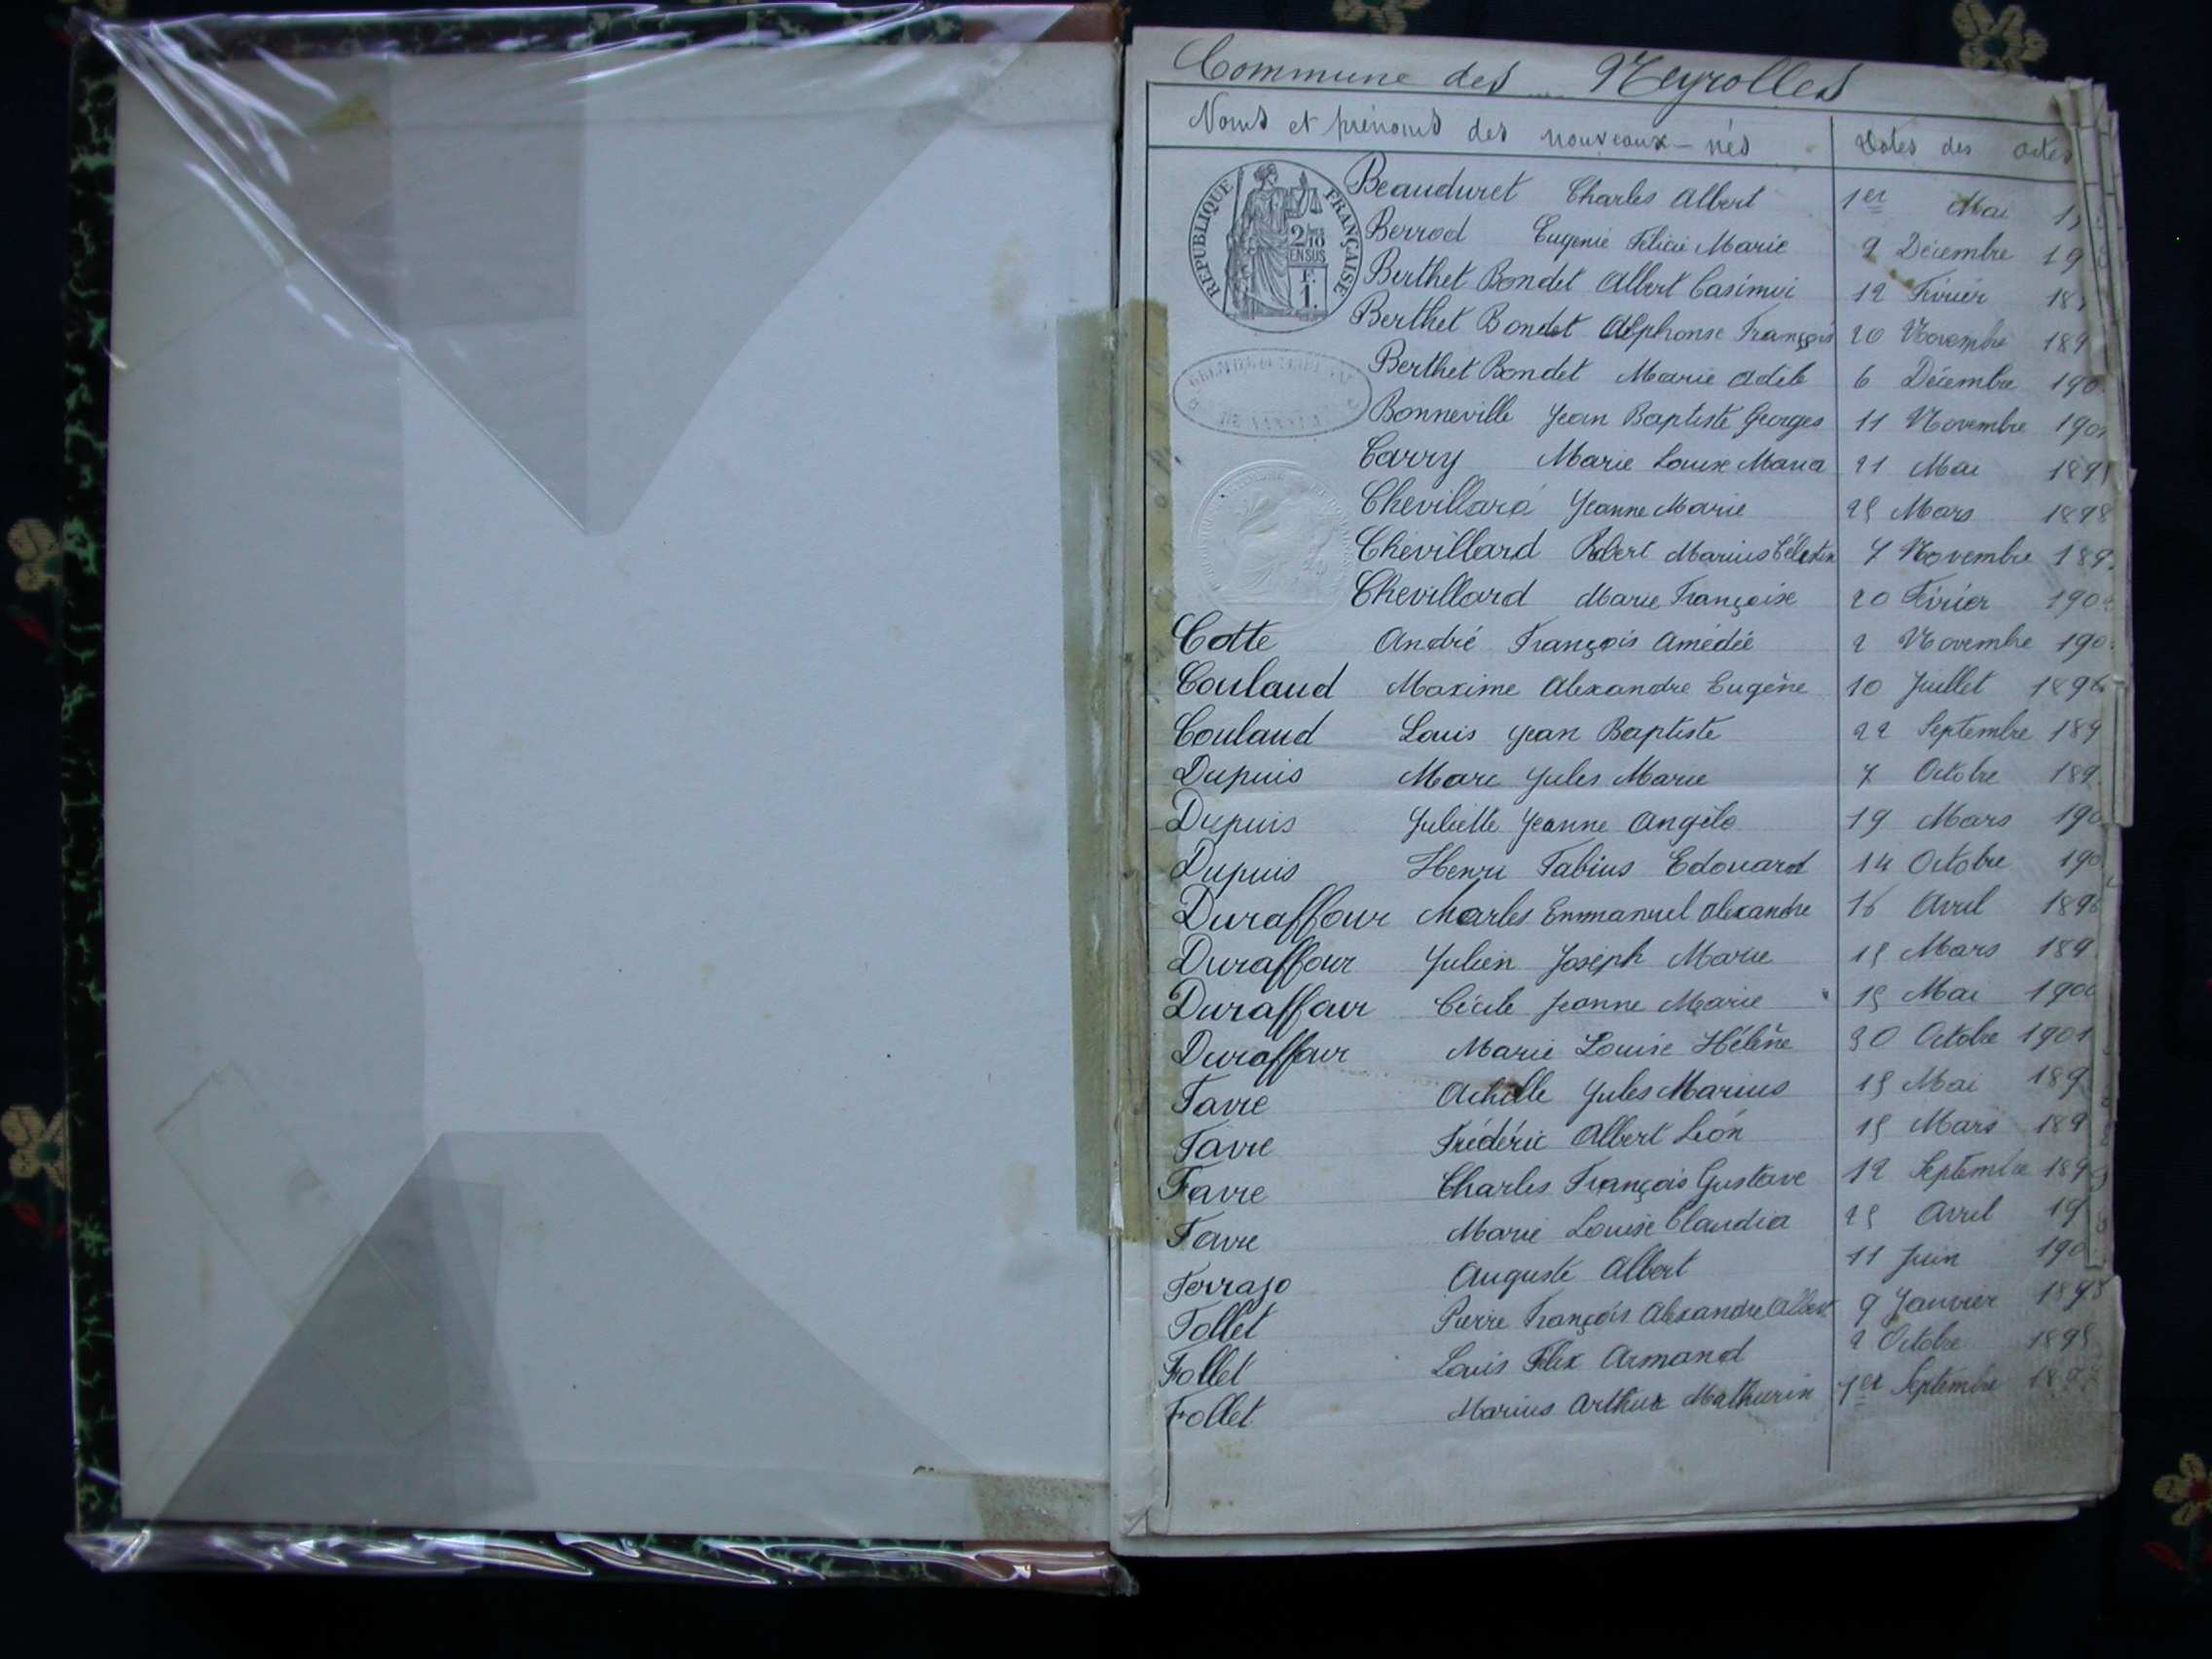 Commune des Neyrolles
Noms et prénoms des nouveaux-nés Dates des actes
REPUBLIQUE FRANÇAISE
2/10
EN SUS
F.
1.
Beauduret Charles Albert 1er Mai
Berrod Eugenie Félicie Marie 9 Décembre 19
Berthet Bondet Albert Casimir 12 Février 18
Berthet Bondet Alphonse François 20 Novembre 189
Berthet Bondet Marie Adèle 6 Décembre 190
Bonneville Jean Baptiste Georges 11 Novembre 190
Carry Marie Louise Maria 21 Mai 189
Chevillard Jeanne Marie 25 Mars 1898
Chevillard Robert Marius Célestin 7 Novembre 189
Chevillard Marie Françoise 20 Février 190
Cotte André François Amédée 2 Novembre 190
Coulaud Maxime Alexandre Eugène 10 Juillet 1896
Coulaud Louis Jean Baptiste 22 Septembre 189
Dupuis Marc Jules Marie 7 Octobre 189
Dupuis Juliette Jeanne Angèle 19 Mars 190
Dupuis Henri Fabius Edouard 14 Octobre 190
Duraffour Charles Emmanuel Alexandre 16 Avril 1896
Duraffour Julien Joseph Marie 15 Mars 189
Duraffour Cécile Jeanne Marie 15 Mai 190
Duraffour Marie Louise Hélène 30 Octobre 1901
Favre Achille Jules Marius 15 Mai 189
Favre Frédéric Albert Léon 15 Mars 189
Favre Charles François Gustave 12 Septembre 189
Favre Marie Louise Claudia 25 Avril 19
Ferraso Auguste Albert 11 Juin 190
Follet Pierre François Alexandre Albert 9 Janvier 1893
Follet Louis Félix Armand 2 Octobre 1895
Follet Marius Arthur Mathurin 1er Septembre 189